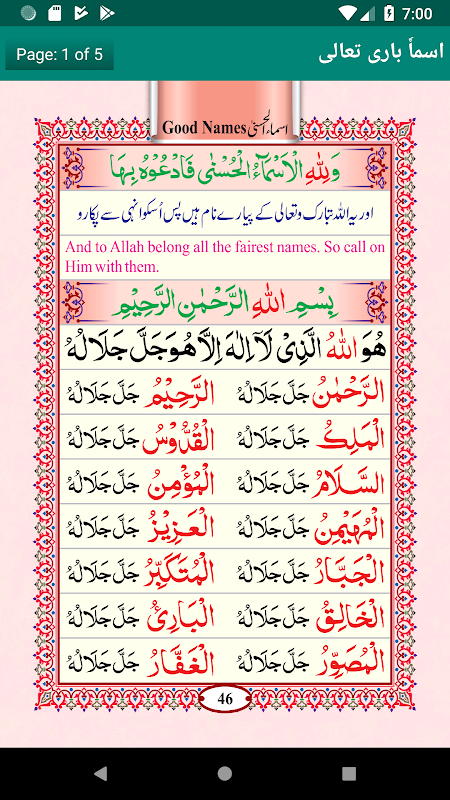 7:00
Page: 1 of 5
اسمأ باری تعالی
Good Names اسماء الحسنٰی
وَلِلّٰهِ الْاَسْمَآءُ الْحُسْنٰى فَادْعُوْهُ بِهَا
اور یہ اللہ تبارک و تعالی کے پیارے نام ہیں پس اُسکو انہی سے پکارو
And to Allah belong all the fairest names. So call on
Him with them.
بِسْمِ اللهِ الرَّحْمٰنِ الرَّحِيْمِ
هُوَ اللهُ الَّذِىْ لَآ اِلٰهَ اِلَّا هُوَ جَلَّ جَلَالُهُ
الرَّحْمٰنُ جَلَّ جَلَالُهُ الرَّحِيْمُ جَلَّ جَلَالُهُ
الْمَلِكُ جَلَّ جَلَالُهُ الْقُدُّوْسُ جَلَّ جَلَالُهُ
السَّلَامُ جَلَّ جَلَالُهُ الْمُؤْمِنُ جَلَّ جَلَالُهُ
الْمُهَيْمِنُ جَلَّ جَلَالُهُ الْعَزِيْزُ جَلَّ جَلَالُهُ
الْجَبَّارُ جَلَّ جَلَالُهُ الْمُتَكَبِّرُ جَلَّ جَلَالُهُ
الْخَالِقُ جَلَّ جَلَالُهُ الْبَارِئُ جَلَّ جَلَالُهُ
الْمُصَوِّرُ جَلَّ جَلَالُهُ الْغَفَّارُ جَلَّ جَلَالُهُ
46